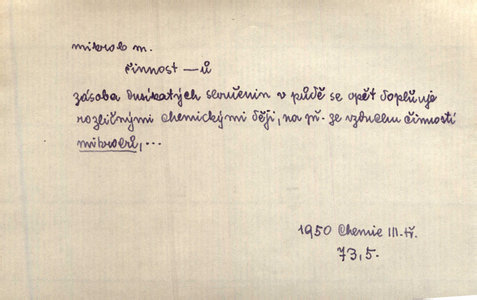 mikrob m.
činnost —ů
zásoba dusíkatých sloučenin v půdě se opět doplňuje
rozličnými chemickými ději, na př. ze vzduchu činností
mikrobů, ...
1950 Chemie III. tř.
73,5.